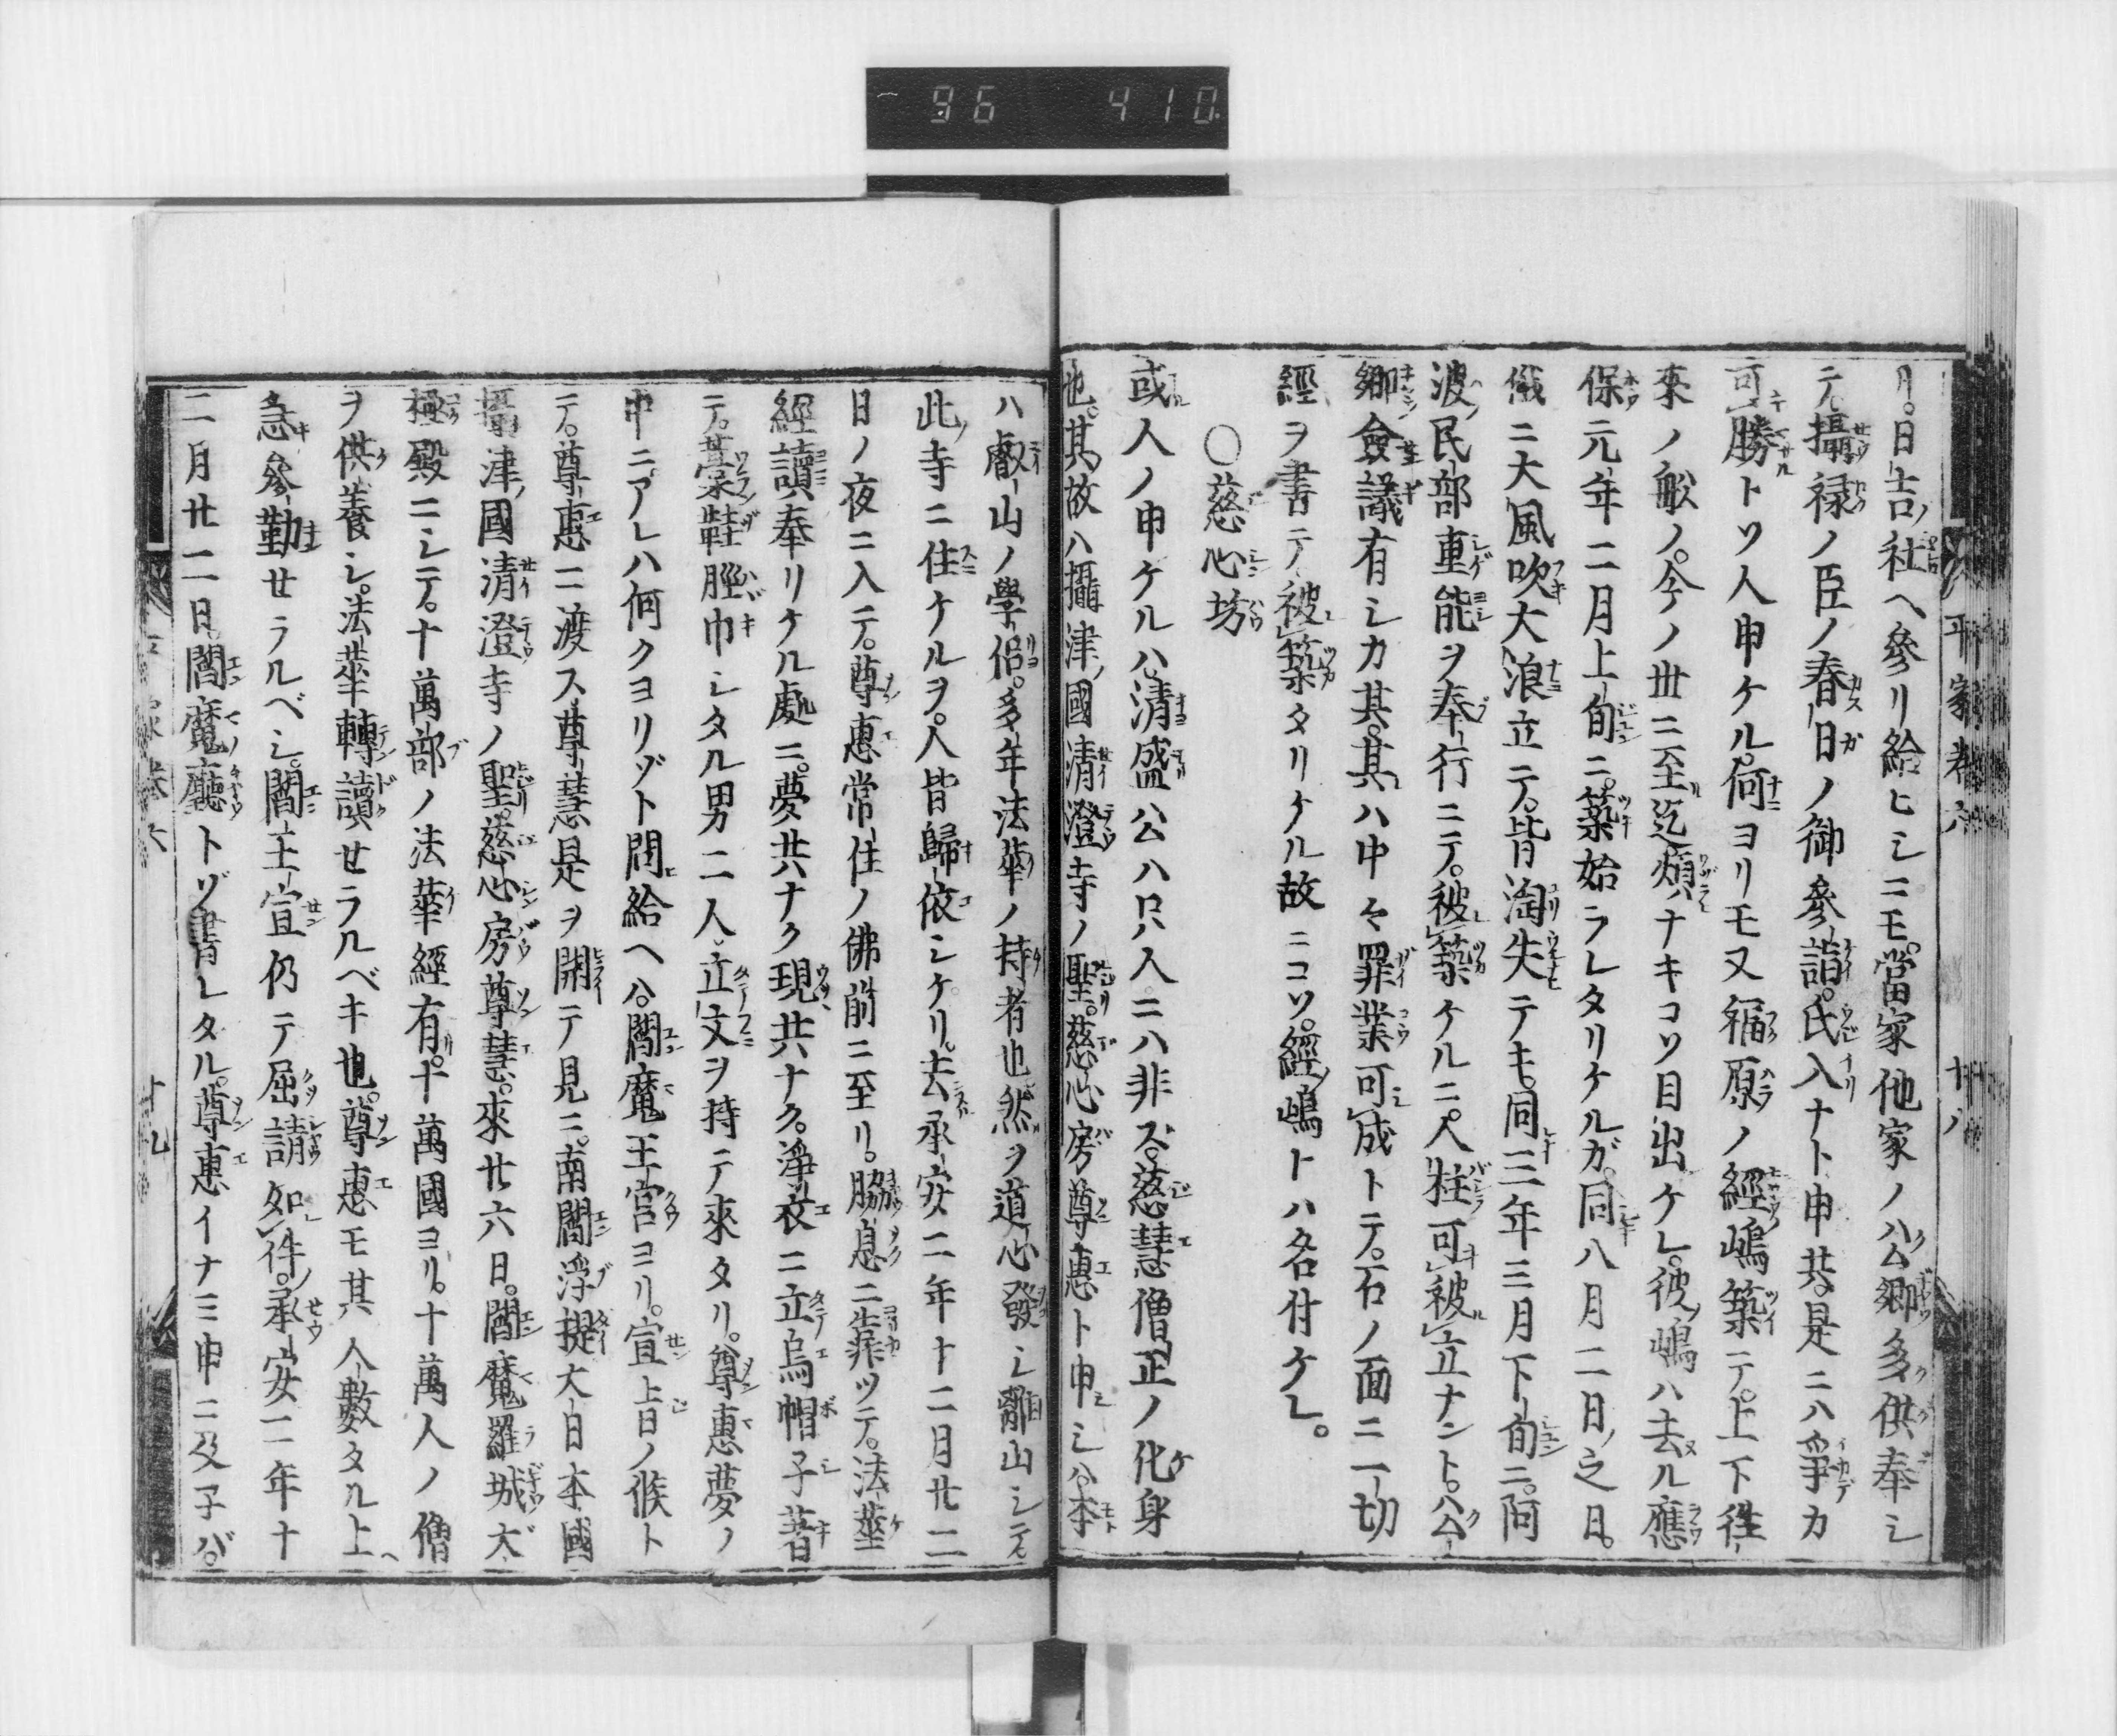 96 410
平家巻六 十八
月。日吉ノ社ヘ參リ給ヒシニモ。當家他家ノ公卿多ク供奉シ
テ。攝禄ノ臣ノ春日ノ御參詣。氏入ナト申共。是ニハ爭カ
可勝トソ人申ケル。何ヨリモ又福原ノ經嶋築テ。上下徃
來ノ舩ノ。今ノ世ニ至迄煩ナキコソ目出ケレ。彼嶋ハ去ル應
保元年二月上旬ニ。築始ラレタリケルガ。同八月二日之日。
俄ニ大風吹大浪立テ。皆淘失テキ。同三年三月下旬ニ。阿
波民部重能ヲ奉行ニテ。被築ケルニ。人柱可被立ナント。公
卿僉議有シカ其。其ハ中々罪業可成トテ。石ノ面ニ一切
經ヲ書テ被築タリケル故ニコソ。經嶋トハ名付ケレ。
○慈心坊
或人ノ申ケルハ。清盛公ハ只人ニハ非ズ。慈慧僧正ノ化身
也。其故ハ攝津國清澄寺ノ聖。慈心房尊惠ト申シハ。本
ハ叡山ノ學侶。多年法華ノ持者也。然ヲ道心發シ離山シテ。
此寺ニ住ケルヲ。人皆歸依シケリ。去承安二年十二月廿二
日ノ夜ニ入テ。尊惠常住ノ佛前ニ至リ。脇息ニ靠ツテ。法華
經讀奉リケル處ニ。夢共ナク現共ナク。淨衣ニ立烏帽子著
テ。藁鞋脛巾シタル男二人。立文ヲ持テ來タリ。尊惠夢ノ
中ニアレハ何クヨリゾト問給ヘハ。閻魔王宮ヨリ。宣旨ノ候ト
テ。尊惠ニ渡ス。尊慧是ヲ開テ見ニ。南閻浮提大日本國
攝津國清澄寺ノ聖。慈心房尊慧。來廿六日。閻魔羅城大
極殿ニシテ。十萬部ノ法華經有。十萬國ヨリ。十萬人ノ僧
ヲ供養シ。法華轉讀セラルベキ也。尊惠モ其人數タル上ヘ
急參勤セラルベシ。閻王宣仍テ屈請如件。承安二年十
二月廿二日。閻魔廳トゾ書レタル。尊惠イナミ申ニ及子バ。
巻六 十九